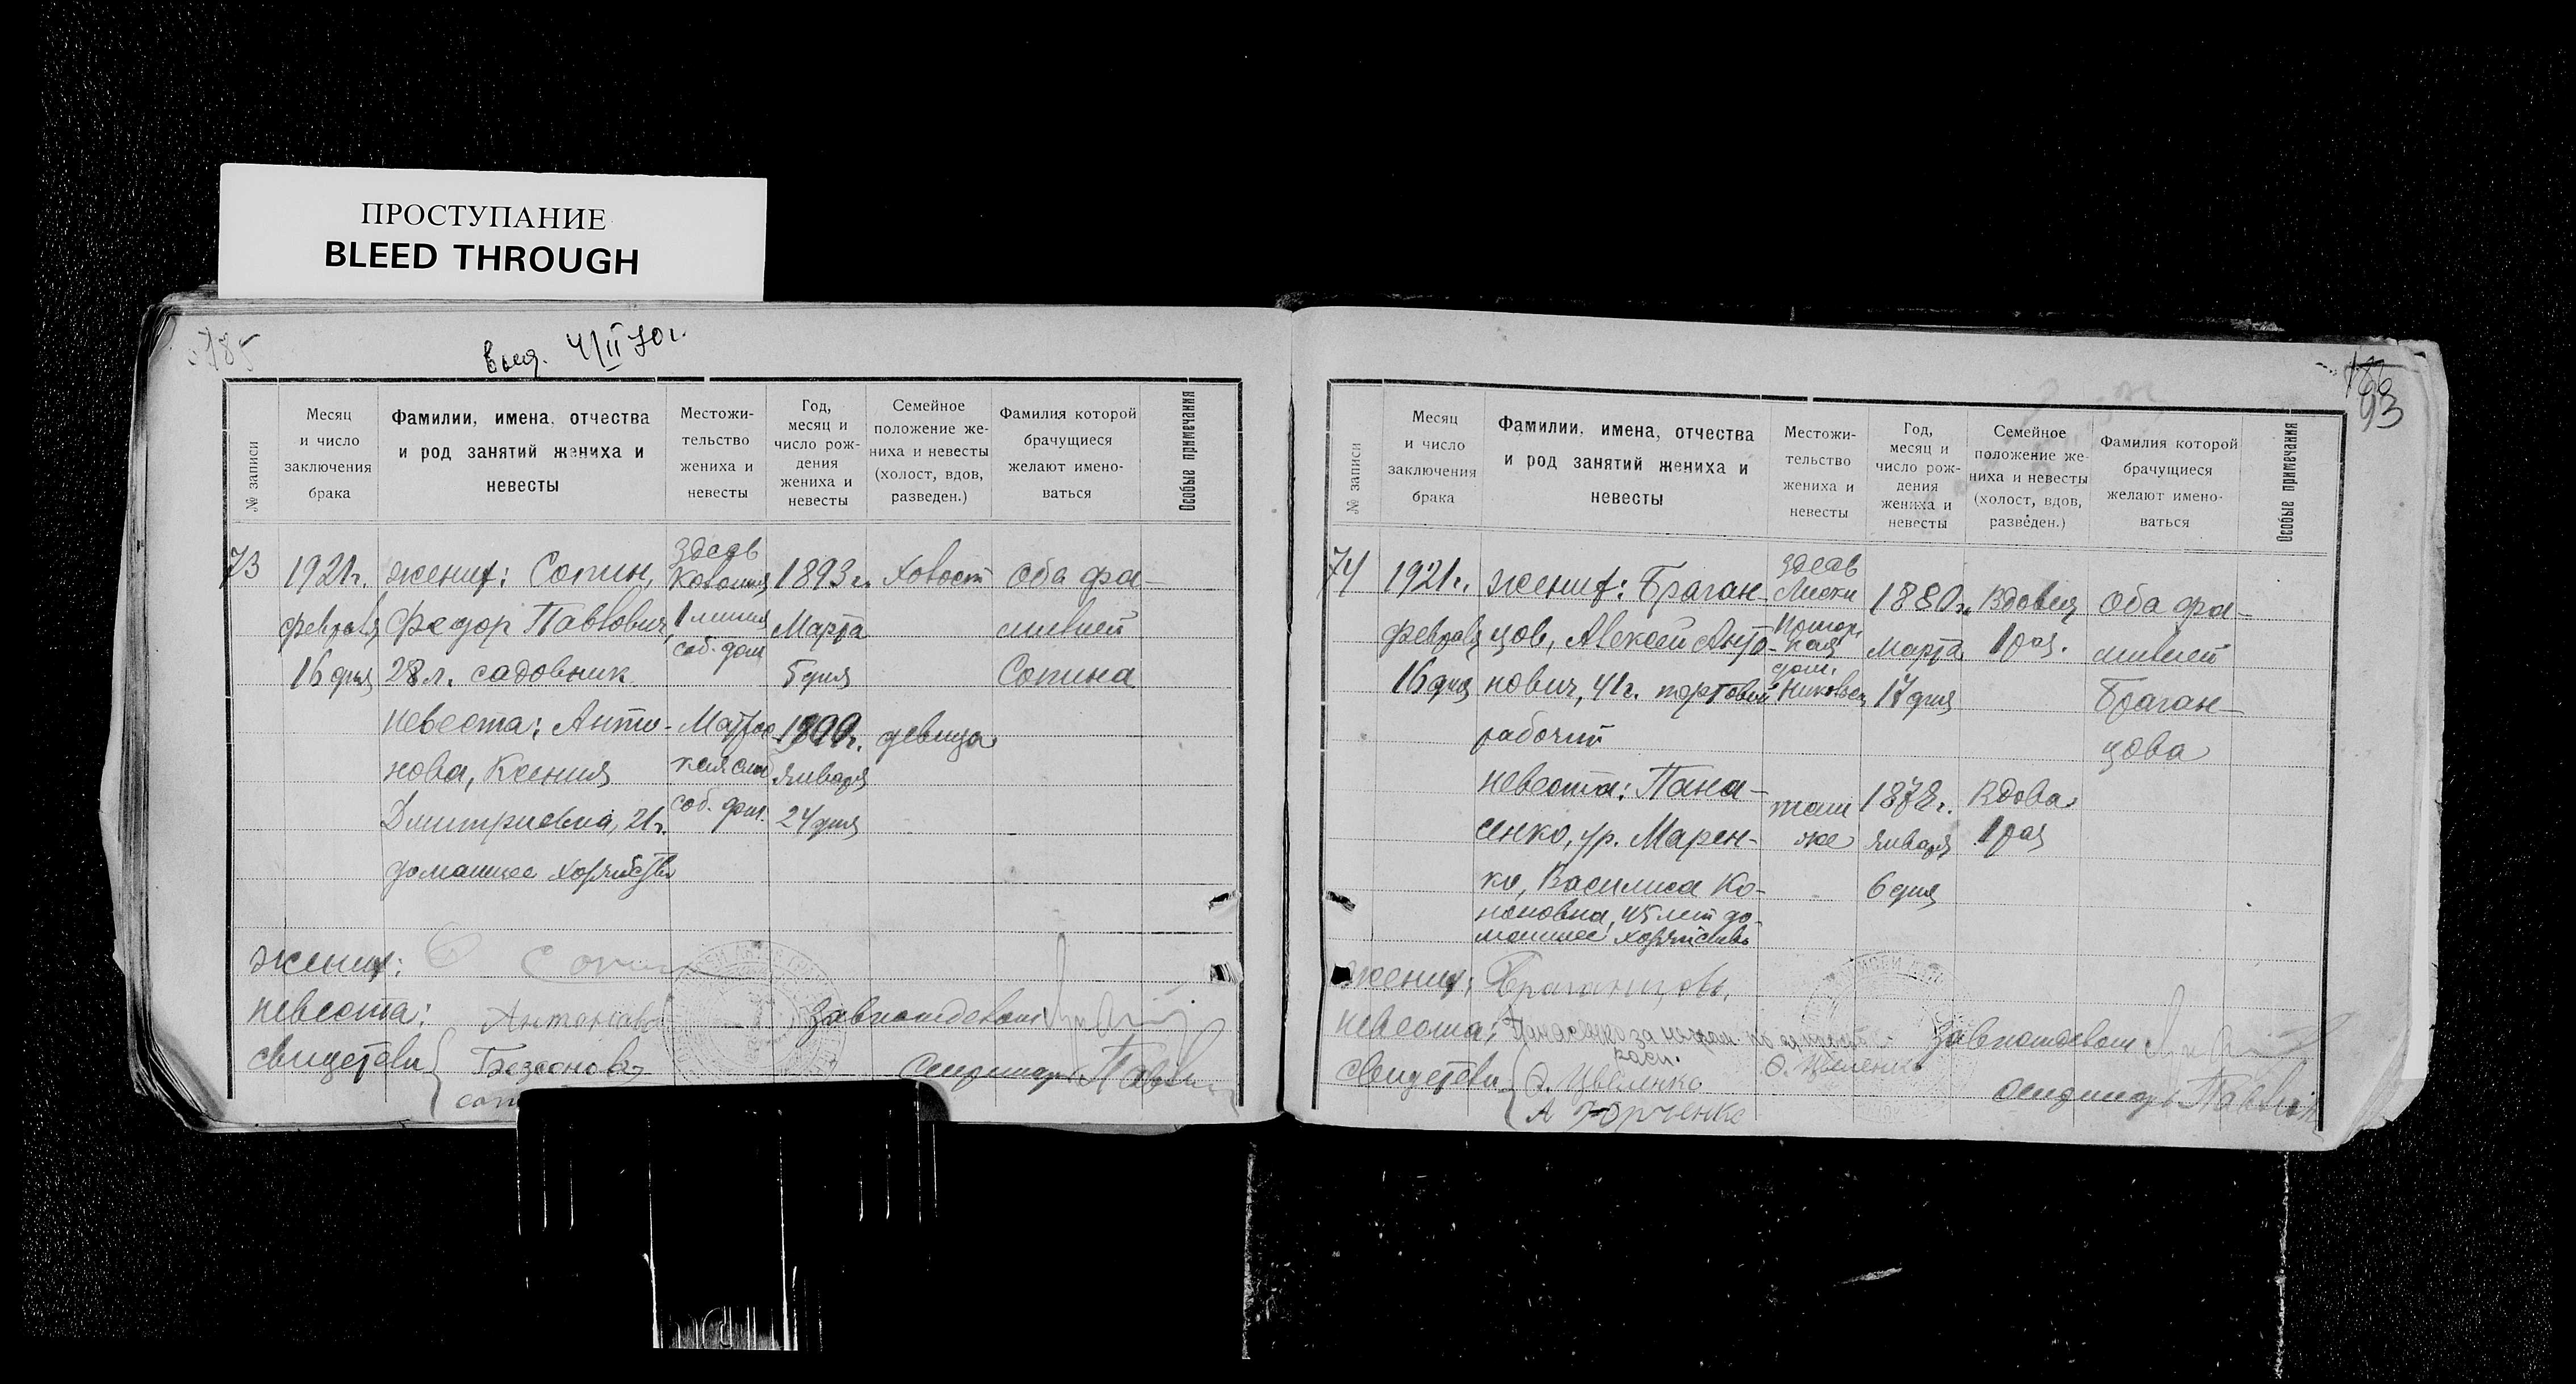 ПРОСТУПАНИЕ
BLEED THROUGH
185
выд. 4/II 70 г.
№ записи
Месяц и число заключения брака
Фамилии, имена, отчества и род занятий жениха и невесты
Местожительство жениха и невесты
Год, месяц и число рождения жениха и невесты
Семейное положение жениха и невесты (холост, вдов, разведен.)
Фамилия которой брачущиеся желают именоваться
Особые примечания
73
1921г.
февраля
16 дня
жених: Сопин,
Федор Павлович,
28 л. садовник
невеста: Анто-
нова, Ксения
Дмитриевна, 21г.
домашнее хозяйство
здесь
Колония
1 линия
соб. дом
соб. дом.
1893 г.
Марта
5 дня
1900г.
Января
24 дня
Холост
девица
Оба фа-
милией
Сопина
жених: Сопин
невеста: Антонова
свидетели
Завподотделом
Секретарь
186
93
№ записи
Месяц и число заключения брака
Фамилии, имена, отчества и род занятий жениха и невесты
Местожительство жениха и невесты
Год, месяц и число рождения жениха и невесты
Семейное положение жениха и невесты (холост, вдов, разведен.)
Фамилия которой брачущиеся желают именоваться
Особые примечания
74
1921г.
февраля
16 дня
жених: Браган-
цов, Алексей Анто-
нович, 41г. портовый
рабочий
невеста: Пана-
сенко, ур. Марен-
ко, Василиса Ко-
ноновна, 45 лет до-
машнее хозяйство
здесь
Лиски
дом.
там
же
1880г.
Марта
17 дня
Января
6 дня
Вдовец
1 раз.
Вдова
1 раз
Оба фа-
милией
Браган-
цова
жених: Браганцовъ.
невеста: Панасенко за
свидетели
А Юрченко
Завподотделом
Секретарь